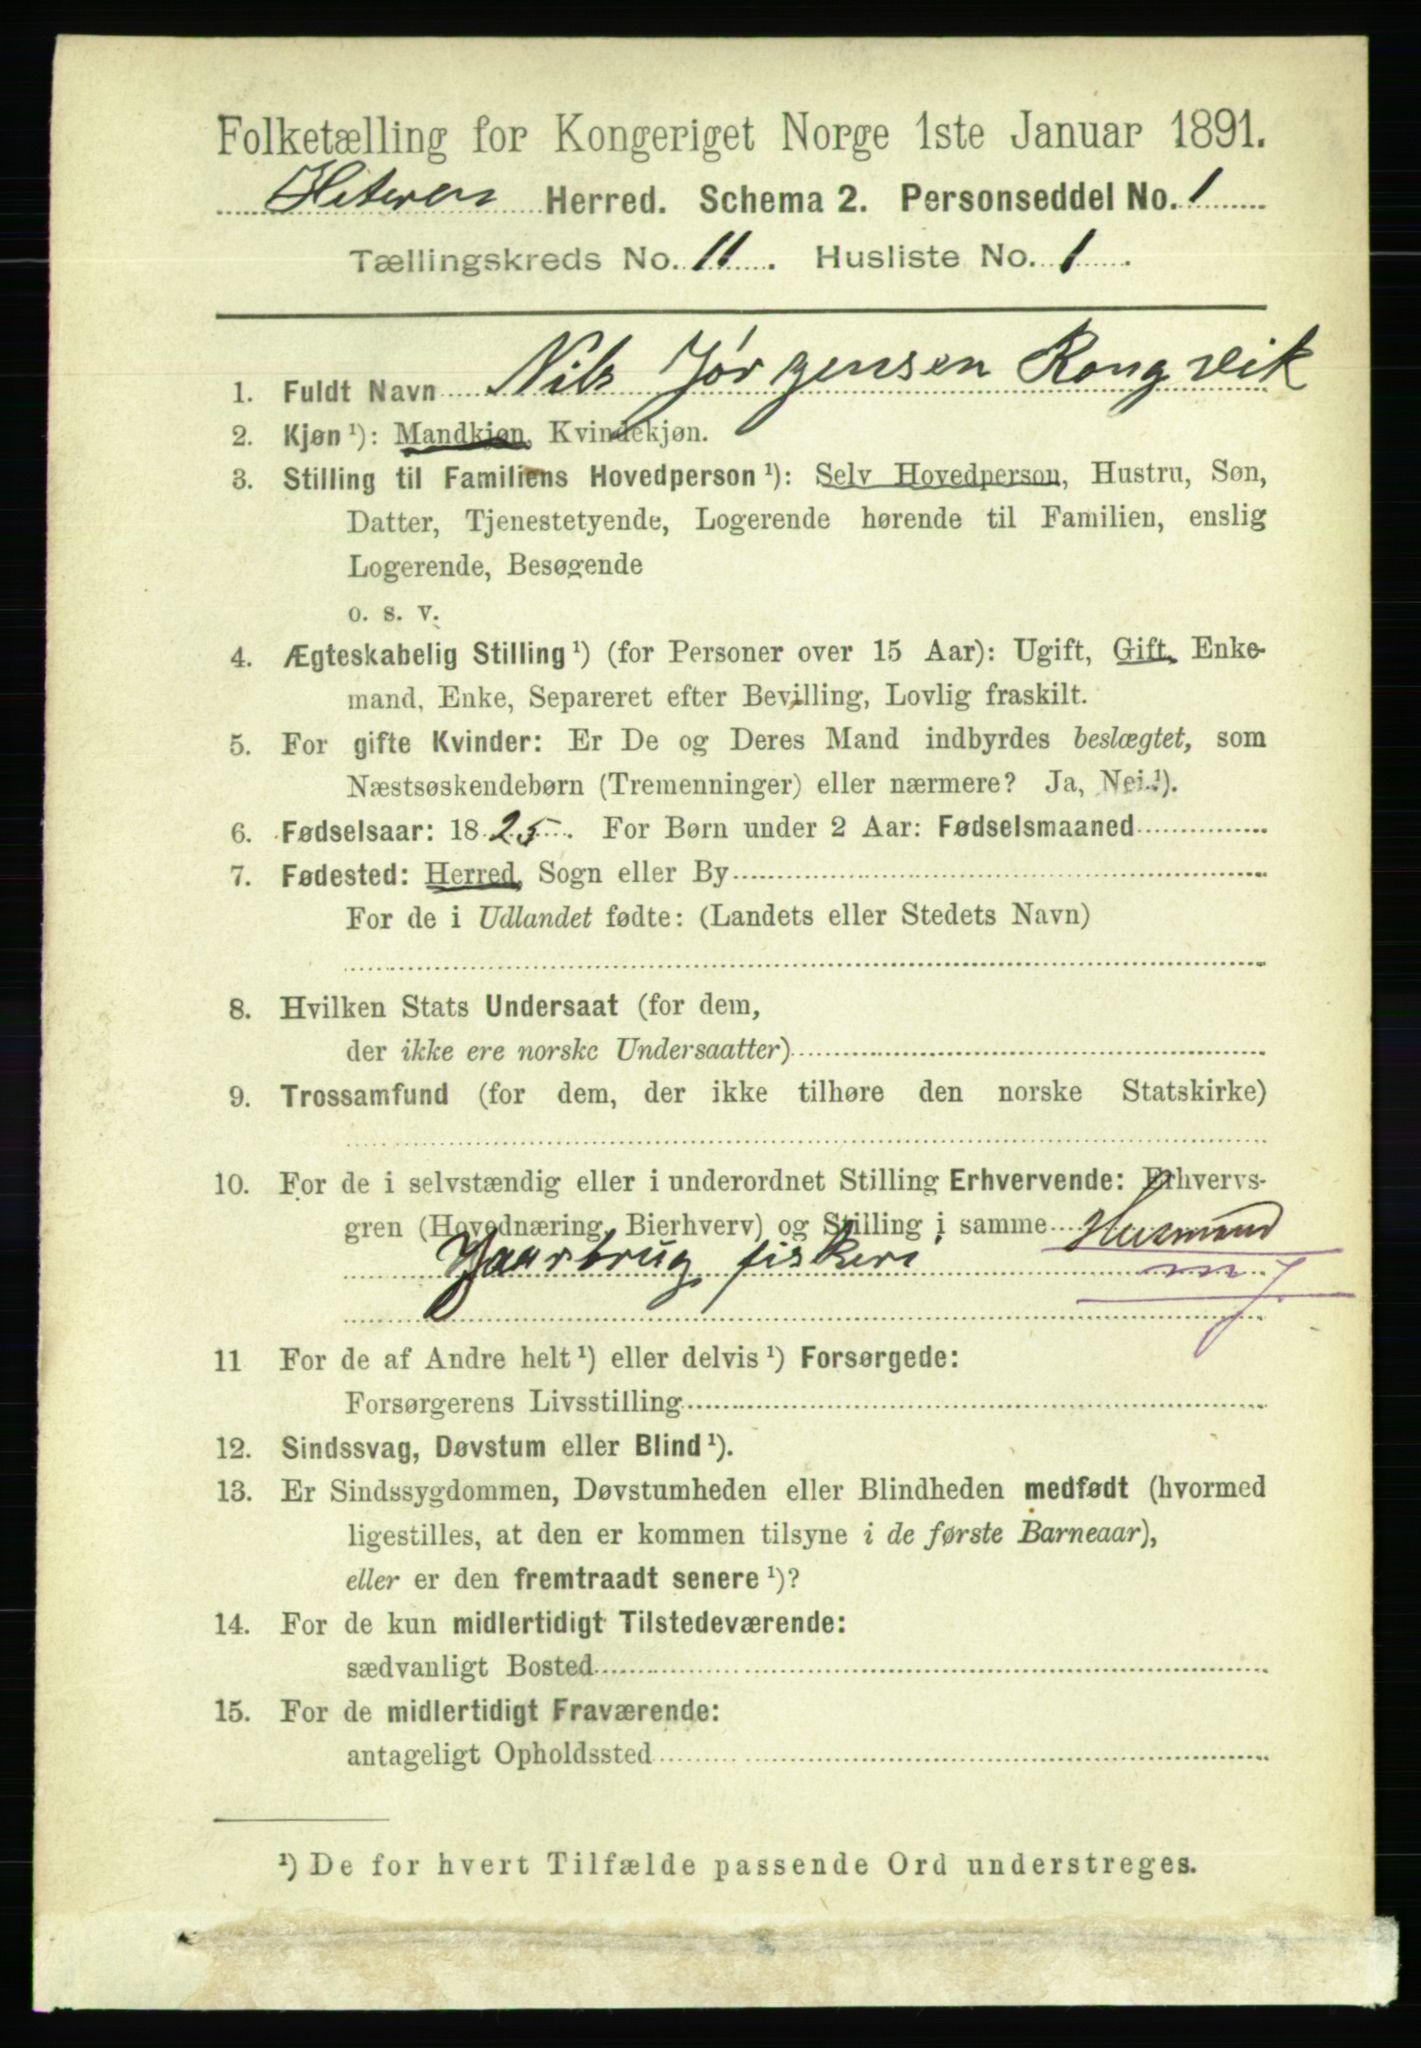 Folketælling for Kongeriget Norge 1ste Januar 1891.
Hiteren Herred. Schema 2. Personseddel No. 1
Tællingskreds No. 11. Husliste No. 1.
1. Fuldt Navn Nils Jørgensen Rongvik
2. Kjøn ¹): Mandkjøn, Kvindekjøn.
3. Stilling til Familiens Hovedperson ¹): Selv Hovedperson, Hustru, Søn,
Datter, Tjenestetyende, Logerende hørende til Familien, enslig
Logerende, Besøgende
o. s. v.
4. Ægteskabelig Stilling ¹) (for Personer over 15 Aar): Ugift, Gift, Enke-
mand, Enke, Separeret efter Bevilling, Lovlig fraskilt.
5. For gifte Kvinder: Er De og Deres Mand indbyrdes beslægtet, som
Næstsøskendebørn (Tremenninger) eller nærmere? Ja, Nei ¹).
6. Fødselsaar: 1825. For Børn under 2 Aar: Fødselsmaaned
7. Fødested: Herred, Sogn eller By
For de i Udlandet fødte: (Landets eller Stedets Navn)
8. Hvilken Stats Undersaat (for dem,
der ikke ere norske Undersaatter)
9. Trossamfund (for dem, der ikke tilhøre den norske Statskirke)
10. For de i selvstændig eller i underordnet Stilling Erhvervende: Erhvervs-
gren (Hovednæring, Bierhverv) og Stilling i samme Husmand
Gaarbrug fiskeri
11 For de af Andre helt ¹) eller delvis ¹) Forsørgede:
Forsørgerens Livsstilling
12. Sindssvag, Døvstum eller Blind ¹).
13. Er Sindssygdommen, Døvstumheden eller Blindheden medfødt (hvormed
ligestilles, at den er kommen tilsyne i de første Barneaar),
eller er den fremtraadt senere ¹)?
14. For de kun midlertidigt Tilstedeværende:
sædvanligt Bosted
15. For de midlertidigt Fraværende:
antageligt Opholdssted
¹) De for hvert Tilfælde passende Ord understreges.